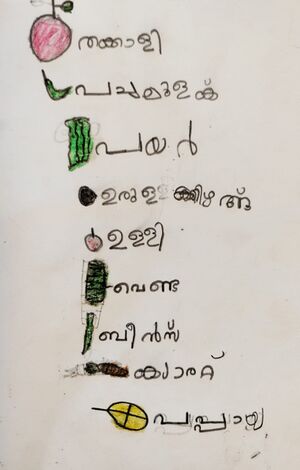 തക്കാളി
പച്ചമുളക്
പയർ
ഉരുളക്കിഴങ്ങ്
ഉള്ളി
വെണ്ട
ബീൻസ്
ക്യാരറ്റ്
പപ്പായ